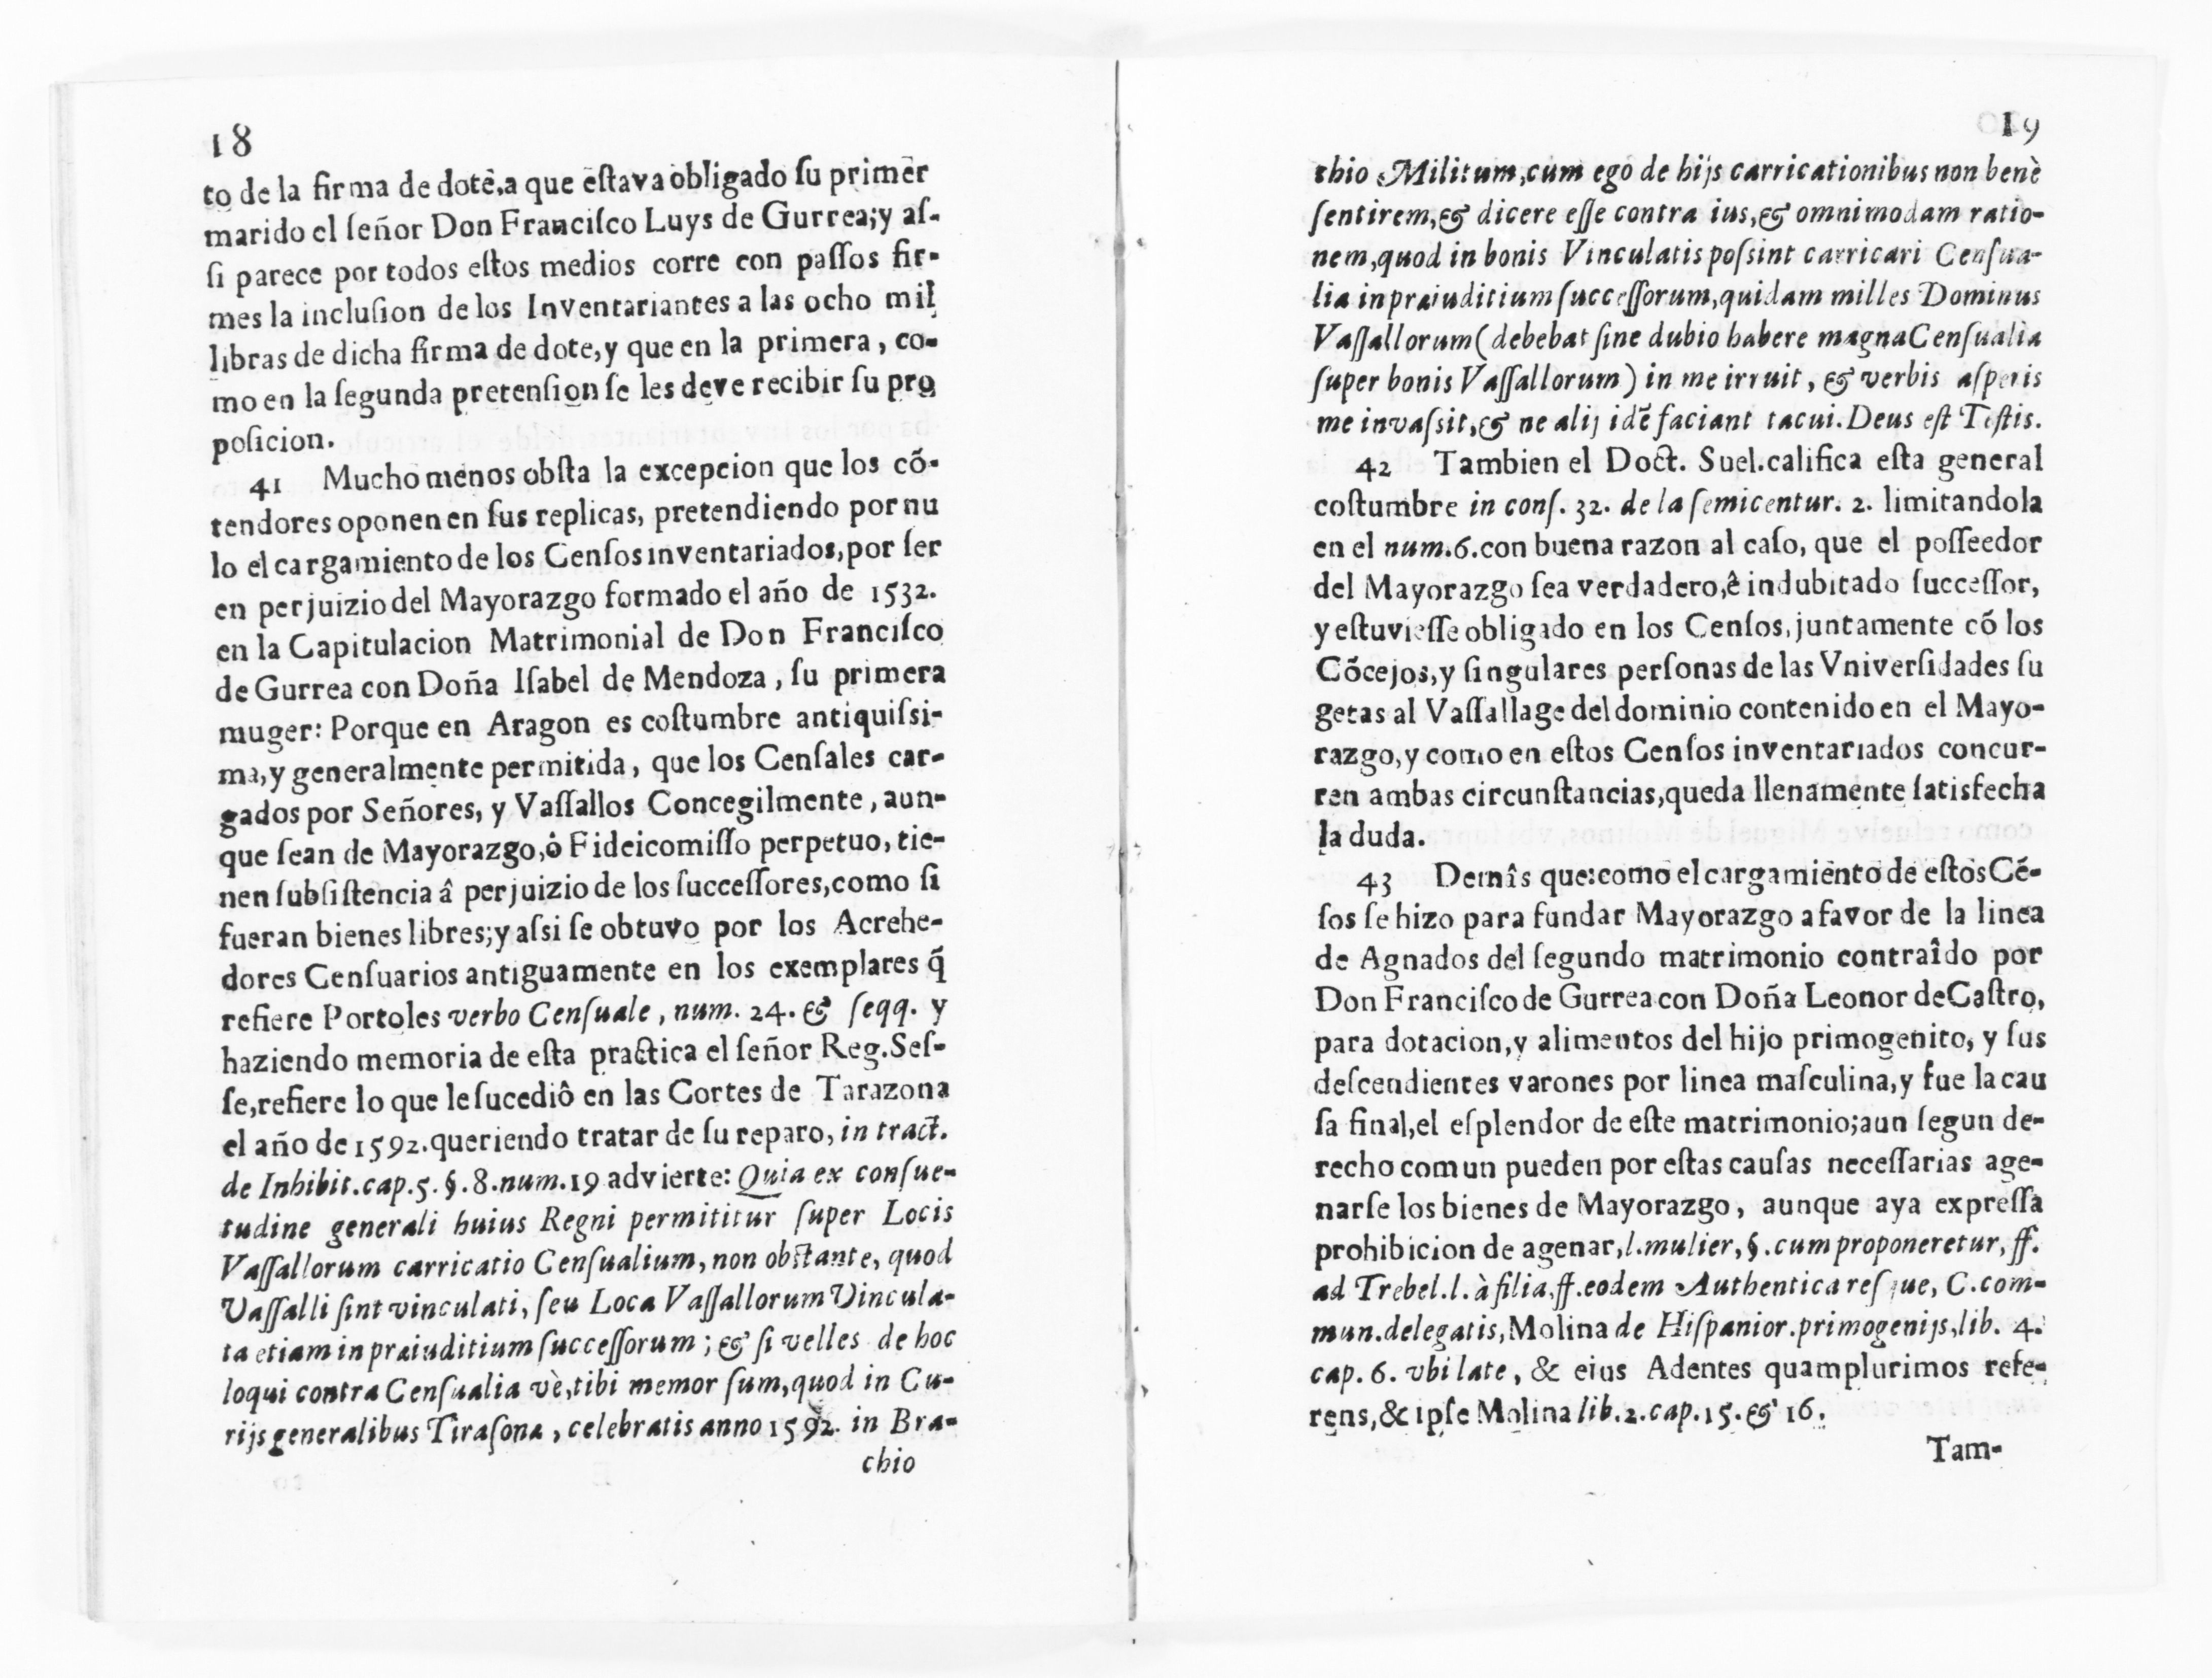 18
to de la firma de dote, a que estava obligado su primer
marido el señor Don Francisco Luys de Gurrea; y as-
si parece por todos estos medios corre con passos fir-
mes la inclusion de los Inventariantes a las ocho mil
libras de dicha firma de dote, y que en la primera, co-
mo en la segunda pretension se les deve recibir su pro
posicion.
41 Mucho menos obsta la excepcion que los cõ-
tendores oponen en sus replicas, pretendiendo por nu
lo el cargamiento de los Censos inventariados, por ser
en perjuizio del Mayorazgo formado el año de 1532.
en la Capitulacion Matrimonial de Don Francisco
de Gurrea con Doña Isabel de Mendoza, su primera
muger: Porque en Aragon es costumbre antiquissi-
ma, y generalmente permitida, que los Censales car-
gados por Señores, y Vassallos Concegilmente, aun-
que sean de Mayorazgo, ò Fideicomisso perpetuo, tie-
nen subsistencia â perjuizio de los successores, como si
fueran bienes libres; y assi se obtuvo por los Acrehe-
dores Censuarios antiguamente en los exemplares q̃
refiere Portoles verbo Censuale, num. 24. & seqq. y
haziendo memoria de esta practica el señor Reg. Ses-
se, refiere lo que le sucediô en las Cortes de Tarazona
el año de 1592. queriendo tratar de su reparo, in tract.
de Inhibit. cap. 5. §. 8. num. 19 advierte: Quia ex consue-
tudine generali huius Regni permititur super Locis
Vassallorum carricatio Censualium, non obstante, quod
Vassalli sint vinculati, seu Loca Vassallorum Vincula-
ta etiam in praiuditium successorum; & si velles de hoc
loqui contra Censualia vè, tibi memor sum, quod in Cu-
rijs generalibus Tirasona, celebratis anno 1592. in Bra-
chio
19
chio Militum, cum ego de hijs carricationibus non benè
sentirem, & dicere esse contra ius, & omnimodam ratio-
nem, quod in bonis Vinculatis possint carricari Censua-
lia in praiuditium successorum, quidam milles Dominus
Vassallorum (debebat sine dubio habere magna Censualia
super bonis Vassallorum) in me irruit, & verbis asperis
me invassit, & ne alij idẽ faciant tacui. Deus est Testis.
42 Tambien el Doct. Suel. califica esta general
costumbre in cons. 32. de la semicentur. 2. limitandola
en el num. 6. con buena razon al caso, que el posseedor
del Mayorazgo sea verdadero, ê indubitado successor,
y estuviesse obligado en los Censos, juntamente cõ los
Cõcejos, y singulares personas de las Vniversidades su
getas al Vassallage del dominio contenido en el Mayo-
razgo, y como en estos Censos inventariados concur-
ren ambas circunstancias, queda llenamente satisfecha
la duda.
43 Demâs que: como el cargamiento de estos Cẽ-
sos se hizo para fundar Mayorazgo a favor de la linea
de Agnados del segundo matrimonio contraîdo por
Don Francisco de Gurrea con Doña Leonor de Castro,
para dotacion, y alimentos del hijo primogenito, y sus
descendientes varones por linea masculina, y fue la cau
sa final, el esplendor de este matrimonio; aun segun de-
recho comun pueden por estas causas necessarias age-
narse los bienes de Mayorazgo, aunque aya expressa
prohibicion de agenar, l. mulier, §. cum proponeretur, ff.
ad Trebel. l. à filia, ff. eodem Authentica res que, C. com-
mun. delegatis, Molina de Hispanior. primogenijs, lib. 4.
cap. 6. vbi late, & eius Adentes quamplurimos refe-
rens, & ipse Molina lib. 2. cap. 15. & 16.
Tam-